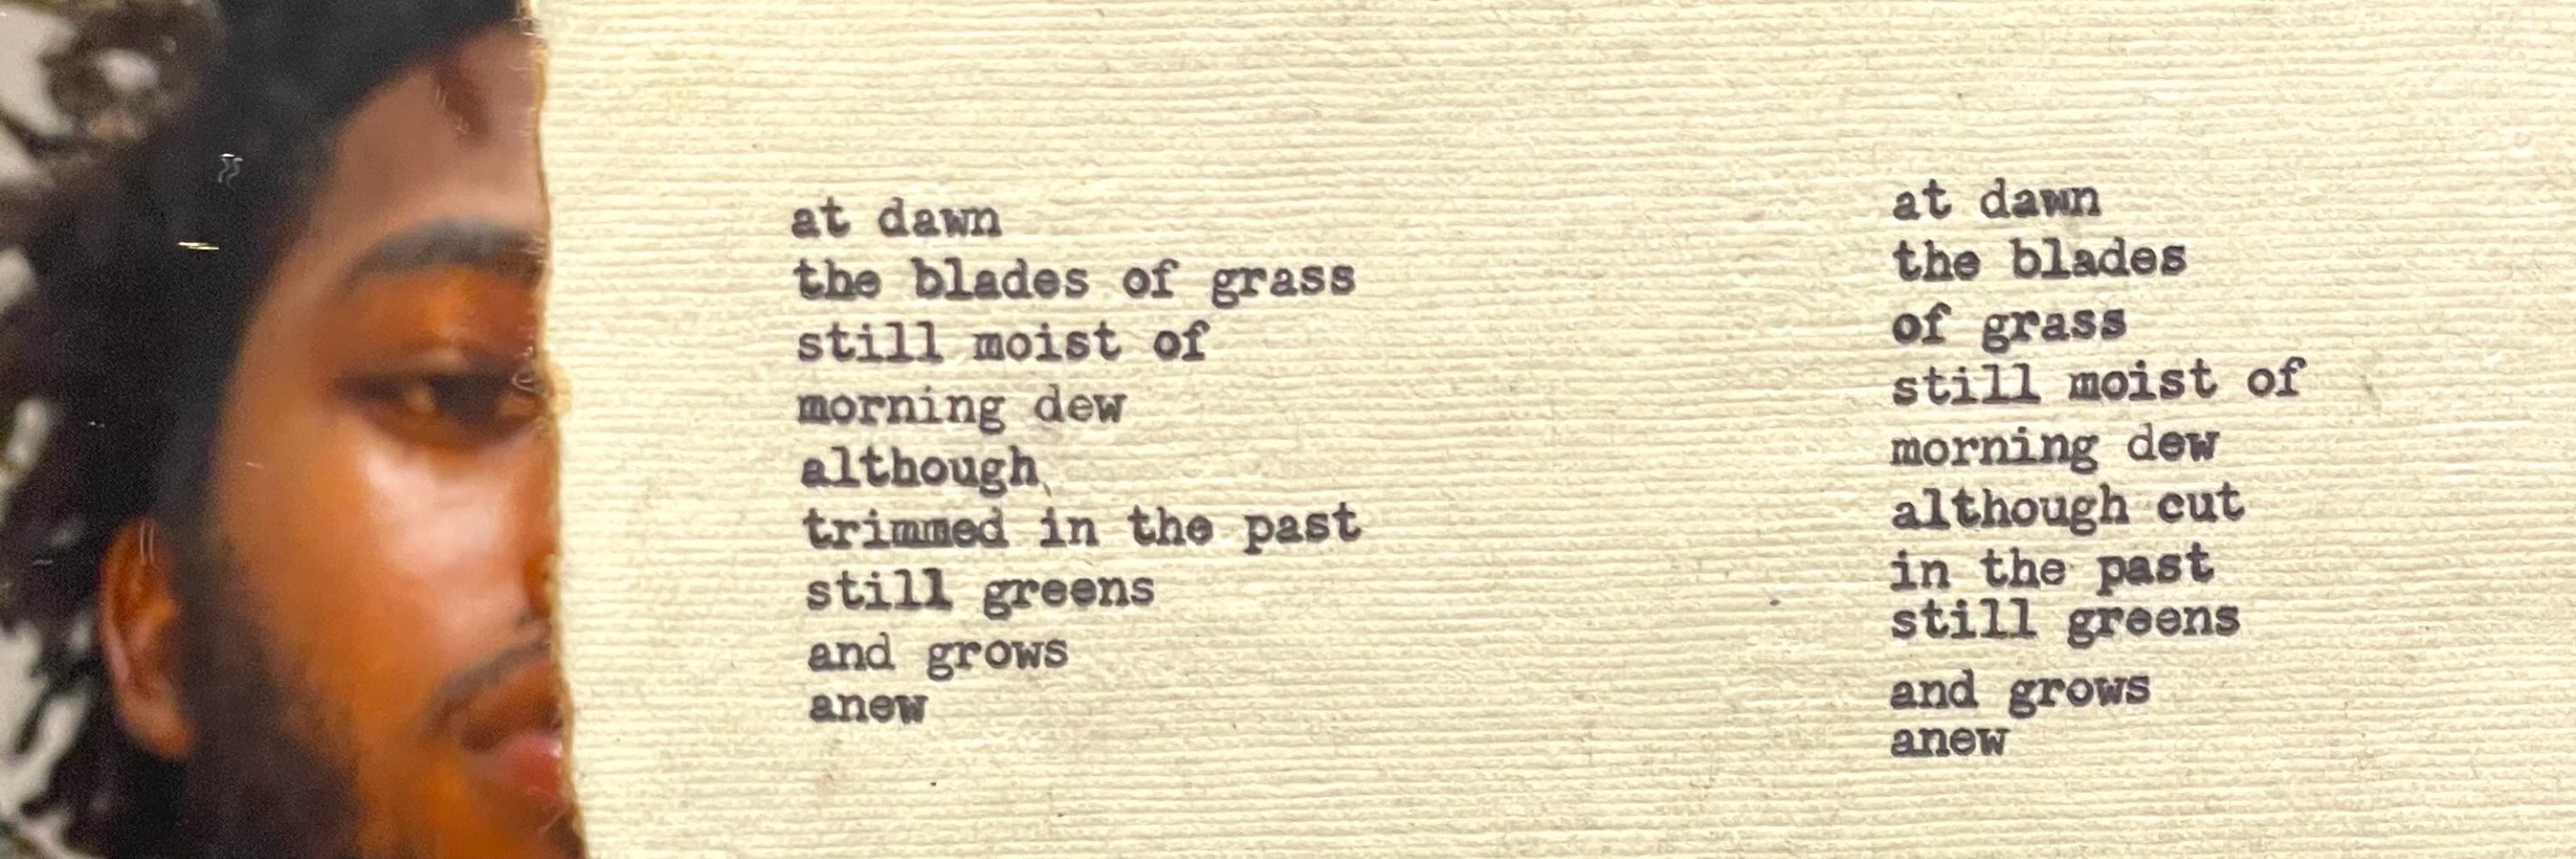 at dawn
the blades of grass
still moist of
morning dew
although
trimmed in the past
still greens
and grows
anew
at dawn
the blades
of grass
still moist of
morning dew
although cut
in the past
still greens
and grows
anew